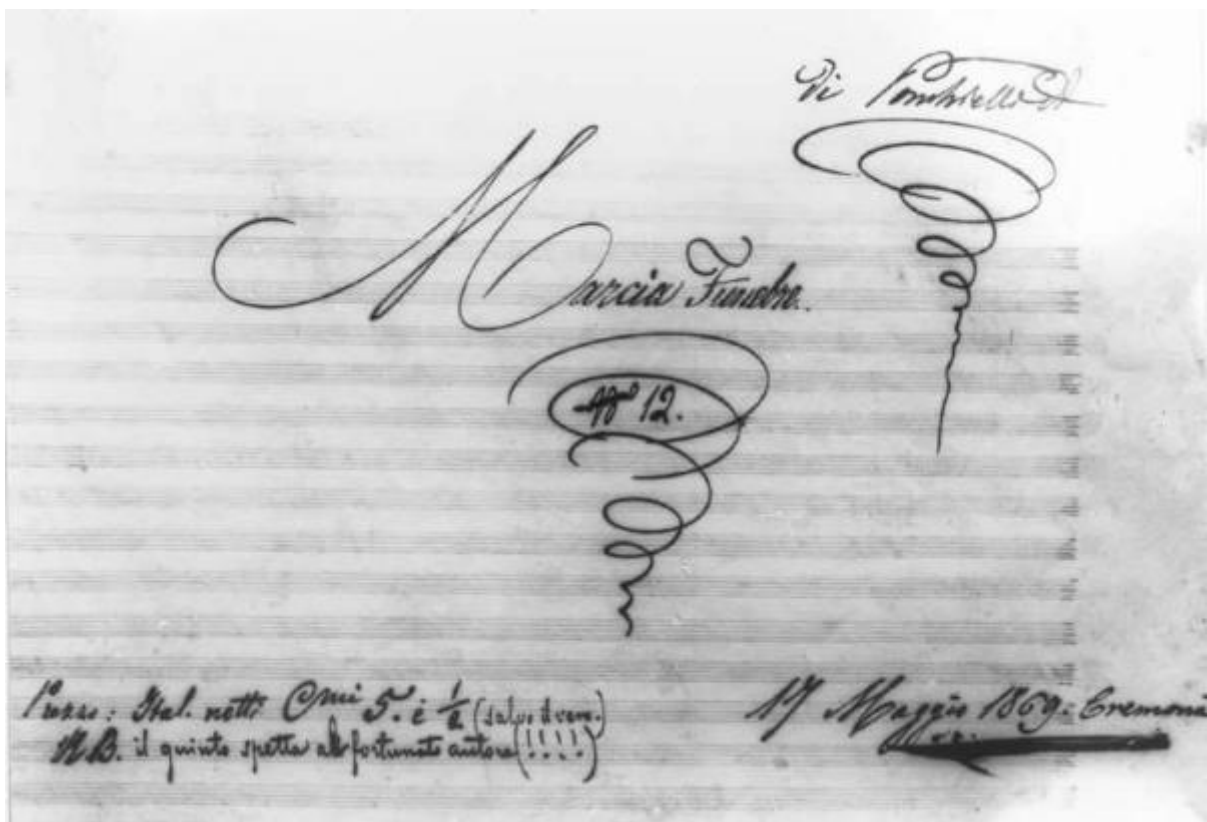 Di Ponchielli A
Marcia Funebre.
N° 12.
Prezzo: Ital. netti Cmi 5. e 1/2 (salvo il vero.)
N.B. il quinto spetta al fortunato autore (!!!!)
17 Maggio 1869. Cremona